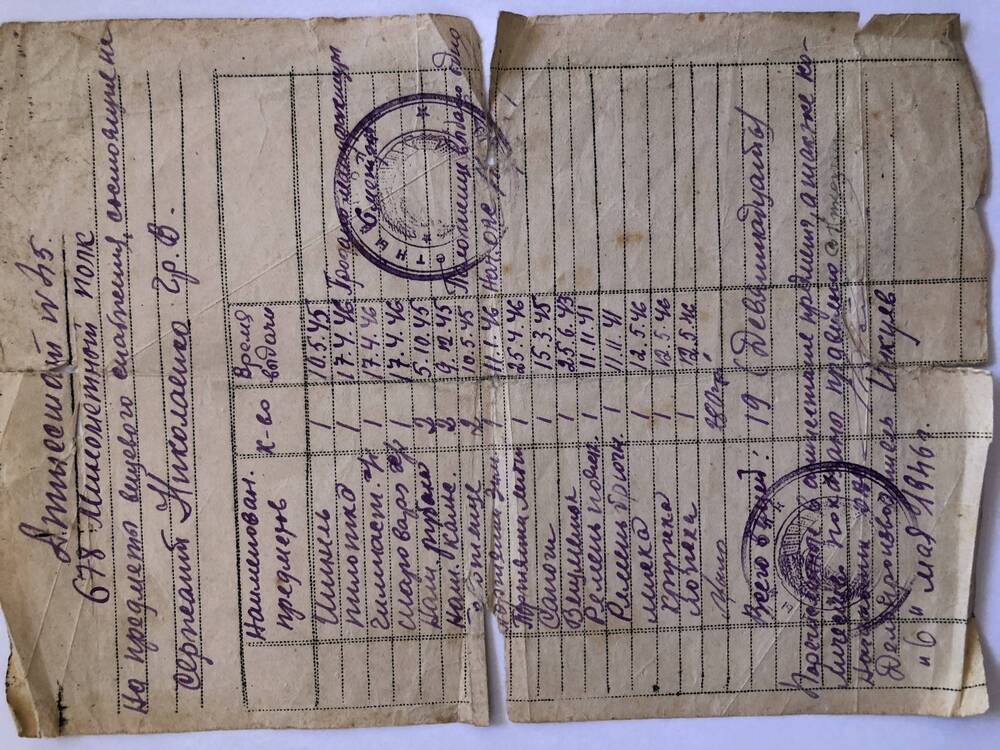 Аттестат N 45.
678 Минометный полк
На предметы вещевого снабжения, состоящия на
Сержант Николаенко Гр. В.
Наименован. предметов К-во Время выдачи
Шинель 1 10.5.45
Пилотка 1 17.4.46 Продано мануфактуры
Гимнаст. х/б 1 17.4.46 6 метров
Шаровары х/б 1 17.4.46
Нат. рубаха 2 5.10.45
Нат. кальс. 2 9.12.45
Полотенце 2 10.5.45 Полотенце выдано одно
Портянки зим. 1 11.1.46 Нач. ОВС
Портянки летн 1 25.4.46
Сапоги 1 15.3.45
Вещмешок 1 25.6.43
Ремень поясн. 1 11.11.41
Ремень брючн. 1 11.11.41
миска 1 12.5.46
кружка 1 12.5.46
ложка 1 12.5.46
Мыло
Всего вещей: 19 (Девятнадцать)
Перечисленные в аттестате предметы, а также ко-
личество показаны правильно
Начальник ОВС
Делопроизводитель Инкуев
"6" мая 1946 г.